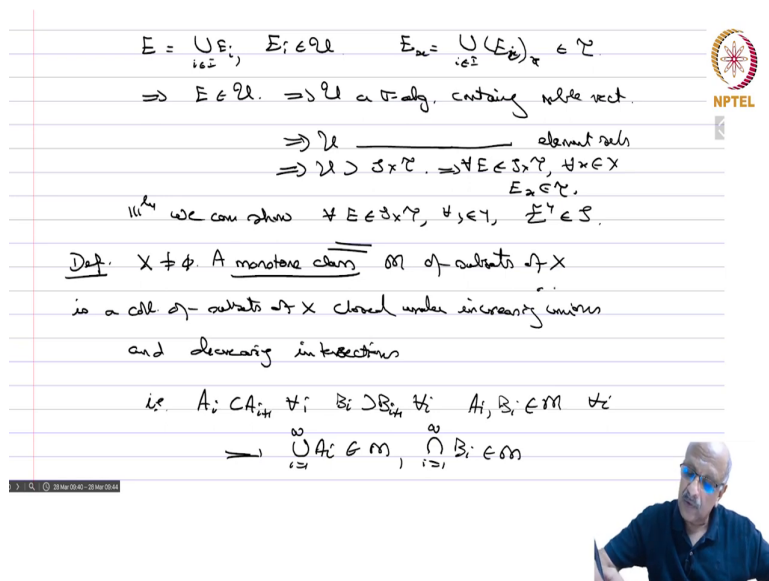 E = ∪_{i∈I} E_i, E_i ∈ 𝒰 E_x = ∪_{i∈I} (E_i)_x ∈ τ
⇒ E ∈ 𝒰. ⇒ 𝒰 a σ-alg. containg mble rect.
NPTEL
⇒ 𝒰 ________ element sets
⇒ 𝒰 ⊃ S×τ. ⇒ ∀E ∈ S×τ, ∀x∈X
E_x ∈ τ.
|||ly we can show ∀ E ∈ S×τ, ∀y∈Y, E^y ∈ S.
Def. X ≠ ϕ. A monotone class M of subsets of X
is a coll. of subsets of X closed under increasing unions
and decreasing intersections
i.e. A_i ⊂ A_{i+1} ∀i B_i ⊃ B_{i+1} ∀i A_i, B_i ∈ M ∀i
⇒ ∪_{i=1}^∞ A_i ∈ M, ∩_{i=1}^∞ B_i ∈ M
28 Mar 09:40 - 28 Mar 09:44